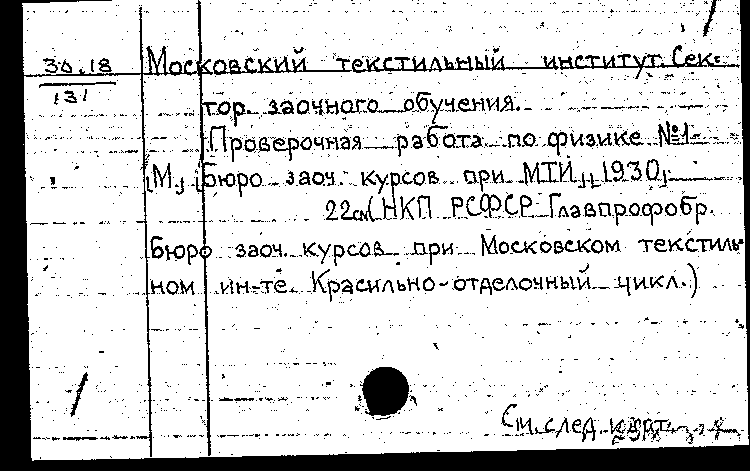 30.18
131
Московский текстильный институт. Сек-
тор заочного обучения.
Проверочная работа по физике №1.
[М.], [бюро заоч. курсов при МТИ], [1930],
22см (НКП РСФСР Главпрофобр.
Бюро заоч. курсов при Московском текстиль-
ном ин-те. Красильно-отделочный цикл.)
См. след. карт.